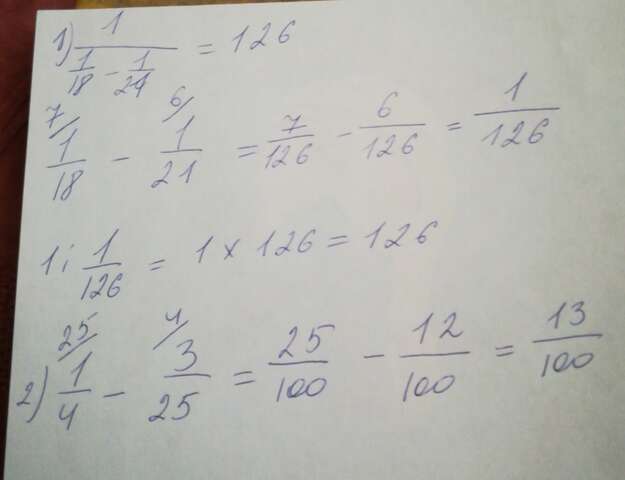 1) 1/(1/18 - 1/21) = 126
7/ 1/18 - 6/ 1/21 = 7/126 - 6/126 = 1/126
1 : 1/126 = 1 × 126 = 126
2) 25/ 1/4 - 4/ 3/25 = 25/100 - 12/100 = 13/100